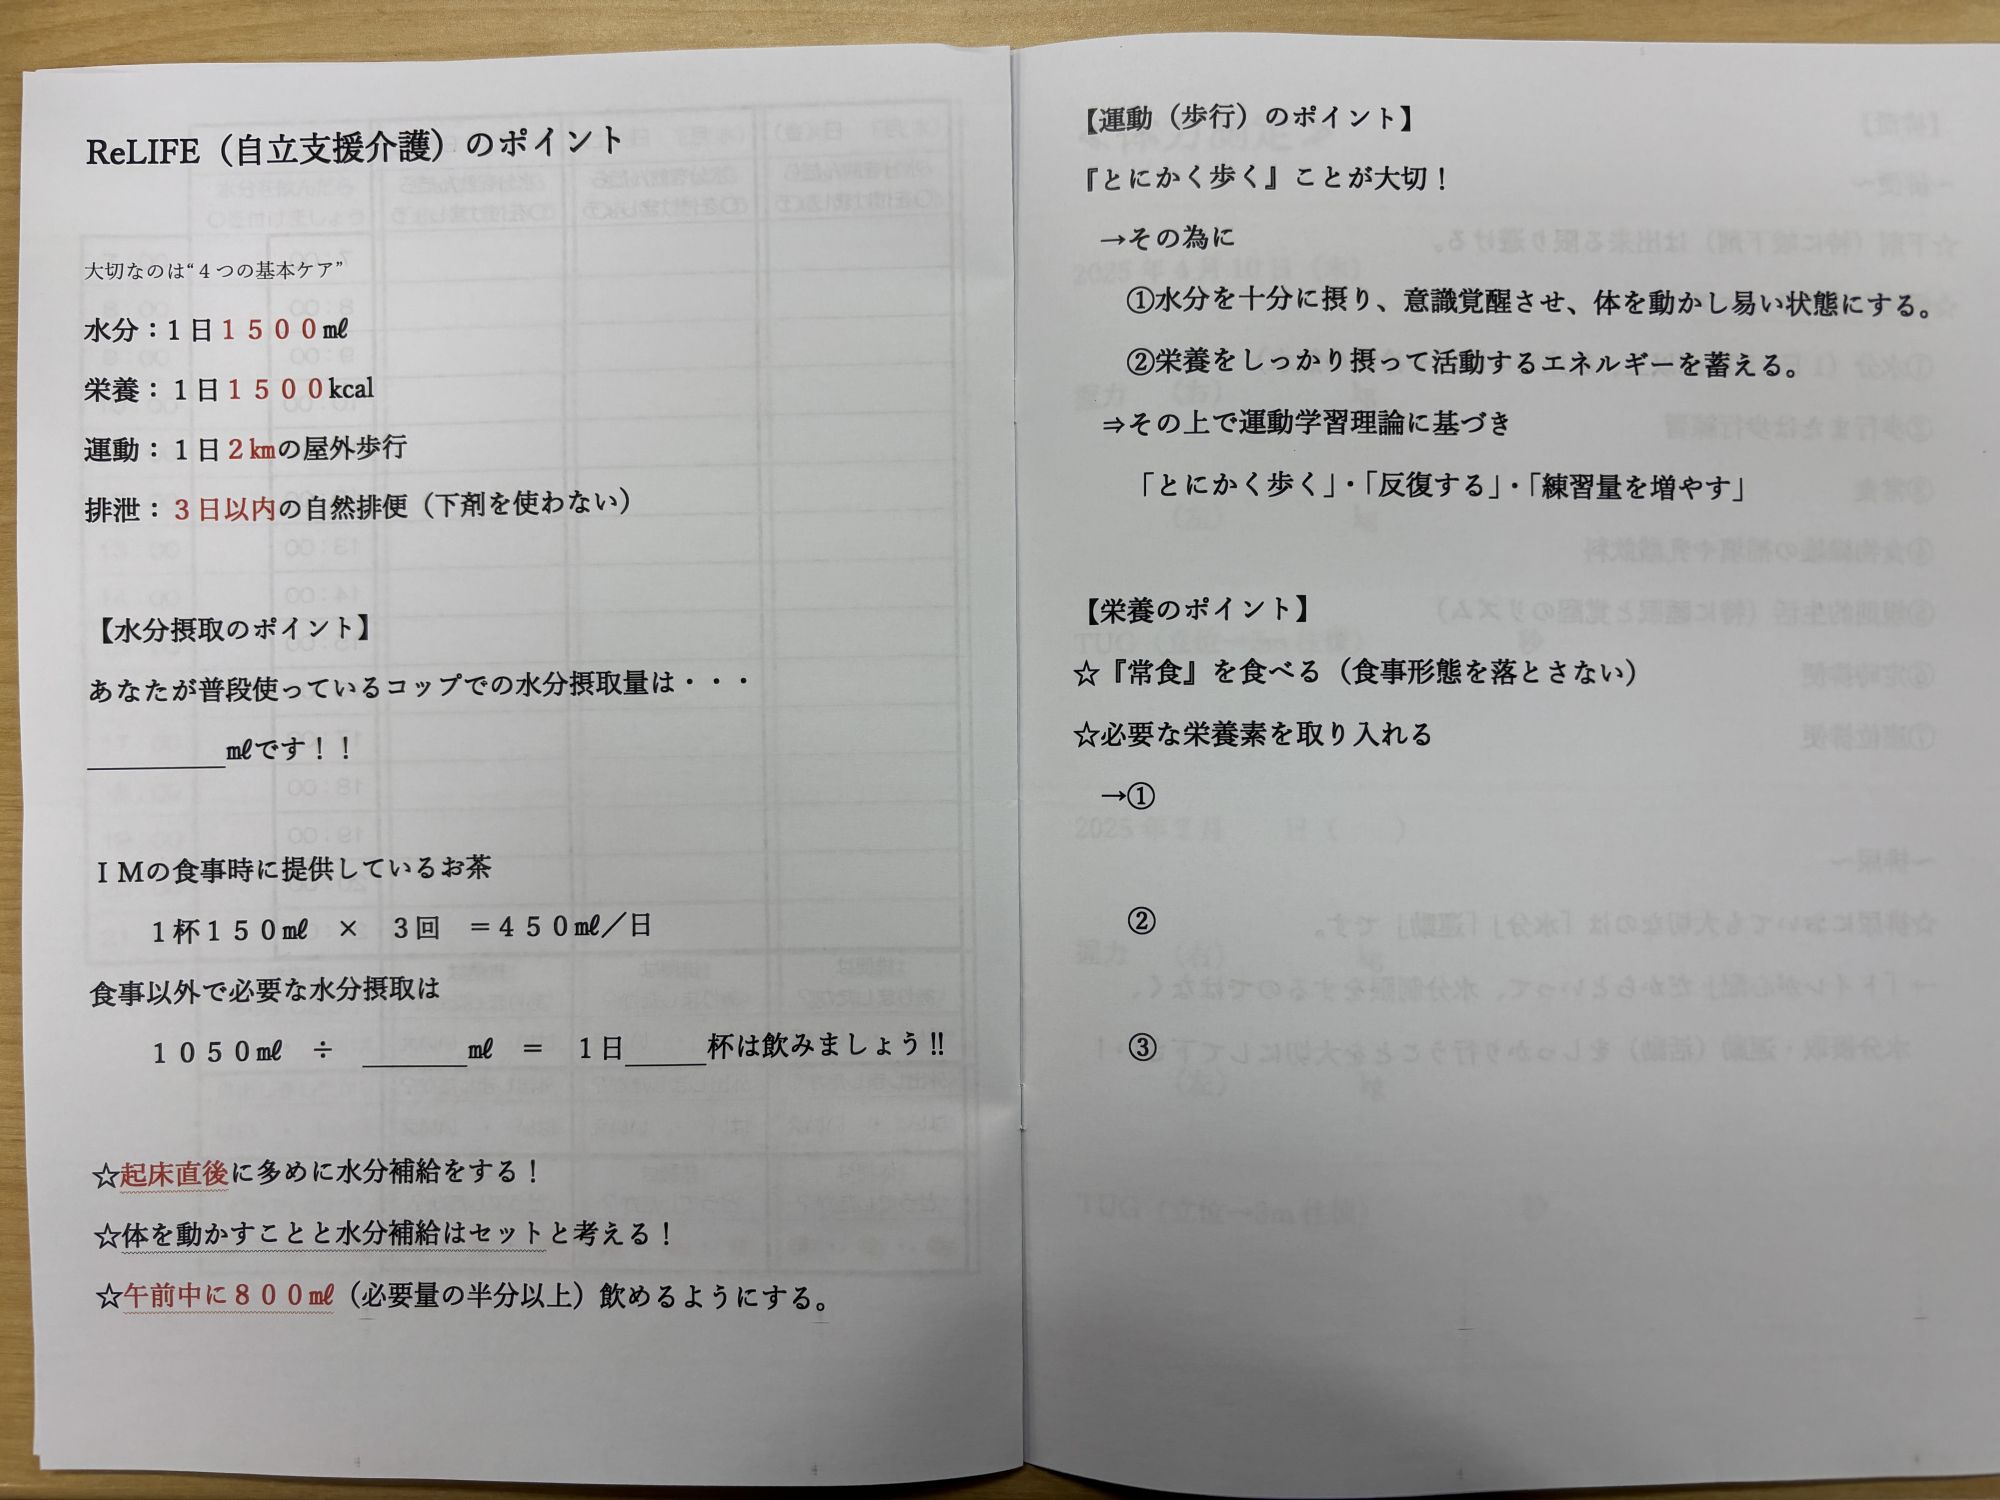 ReLIFE（自立支援介護）のポイント
大切なのは“４つの基本ケア”
水分：１日１５００㎖
栄養：１日１５００kcal
運動：１日２㎞の屋外歩行
排泄：３日以内の自然排便（下剤を使わない）
【水分摂取のポイント】
あなたが普段使っているコップでの水分摂取量は・・・
＿＿＿＿＿㎖です！！
ＩＭの食事時に提供しているお茶
１杯１５０㎖　×　３回　＝４５０㎖／日
食事以外で必要な水分摂取は
１０５０㎖　÷　＿＿＿＿㎖　＝　１日＿＿＿杯は飲みましょう‼
☆起床直後に多めに水分補給をする！
☆体を動かすことと水分補給はセットと考える！
☆午前中に８００㎖（必要量の半分以上）飲めるようにする。
【運動（歩行）のポイント】
『とにかく歩く』ことが大切！
→その為に
①水分を十分に摂り、意識覚醒させ、体を動かし易い状態にする。
②栄養をしっかり摂って活動するエネルギーを蓄える。
⇒その上で運動学習理論に基づき
「とにかく歩く」・「反復する」・「練習量を増やす」
【栄養のポイント】
☆『常食』を食べる（食事形態を落とさない）
☆必要な栄養素を取り入れる
→①
②
③